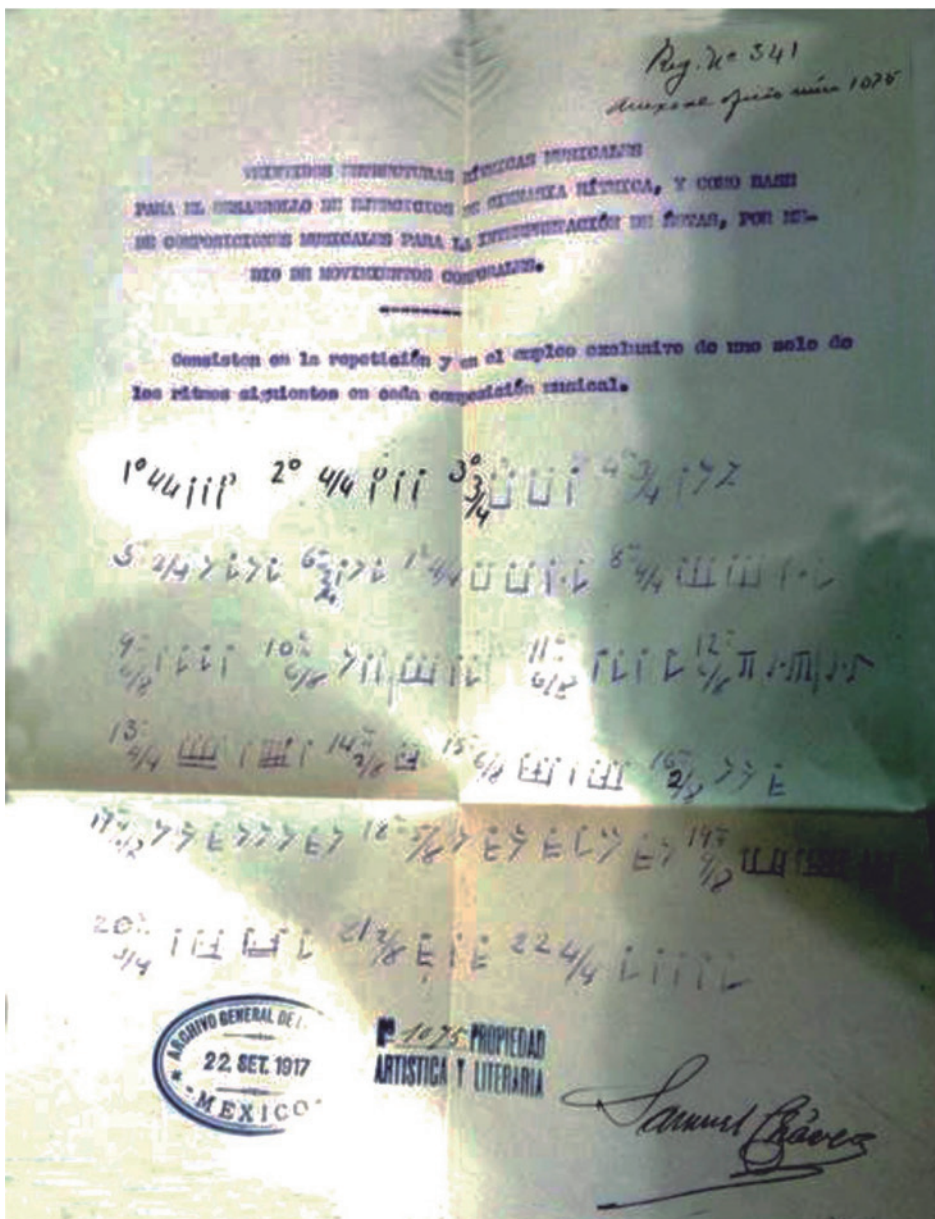 Reg. Nº 341
anexo al oficio núm 1075
VEINTIDOS ESTRUCTURAS RÍTMICAS MUSICALES
PARA EL DESARROLLO DE EJERCICIOS DE GIMNASIA RÍTMICA, Y COMO BASE
DE COMPOSICIONES MUSICALES PARA LA INTERPRETACIÓN DE ÉSTAS, POR ME-
DIO DE MOVIMIENTOS CORPORALES.
Consisten en la repetición y en el empleo exclusivo de uno solo de
los ritmos siguientes en cada composición musical.
1º 44 2º 4/4 3º 3/4 4º 3/4
5º 2/4 6º 4/4 8º 4/4
9º 6/8 10º 6/8 11º 6/8 12º 6/8
13º 4/4 14º 2/8 15º 6/8 16º 2/8
17º 18º 5/8 19º
20º 3/4 21 2/8 22 4/4
ARCHIVO GENERAL DE
22. SET. 1917
MEXICO
1075 PROPIEDAD
ARTISTICA Y LITERARIA
Samuel Chávez